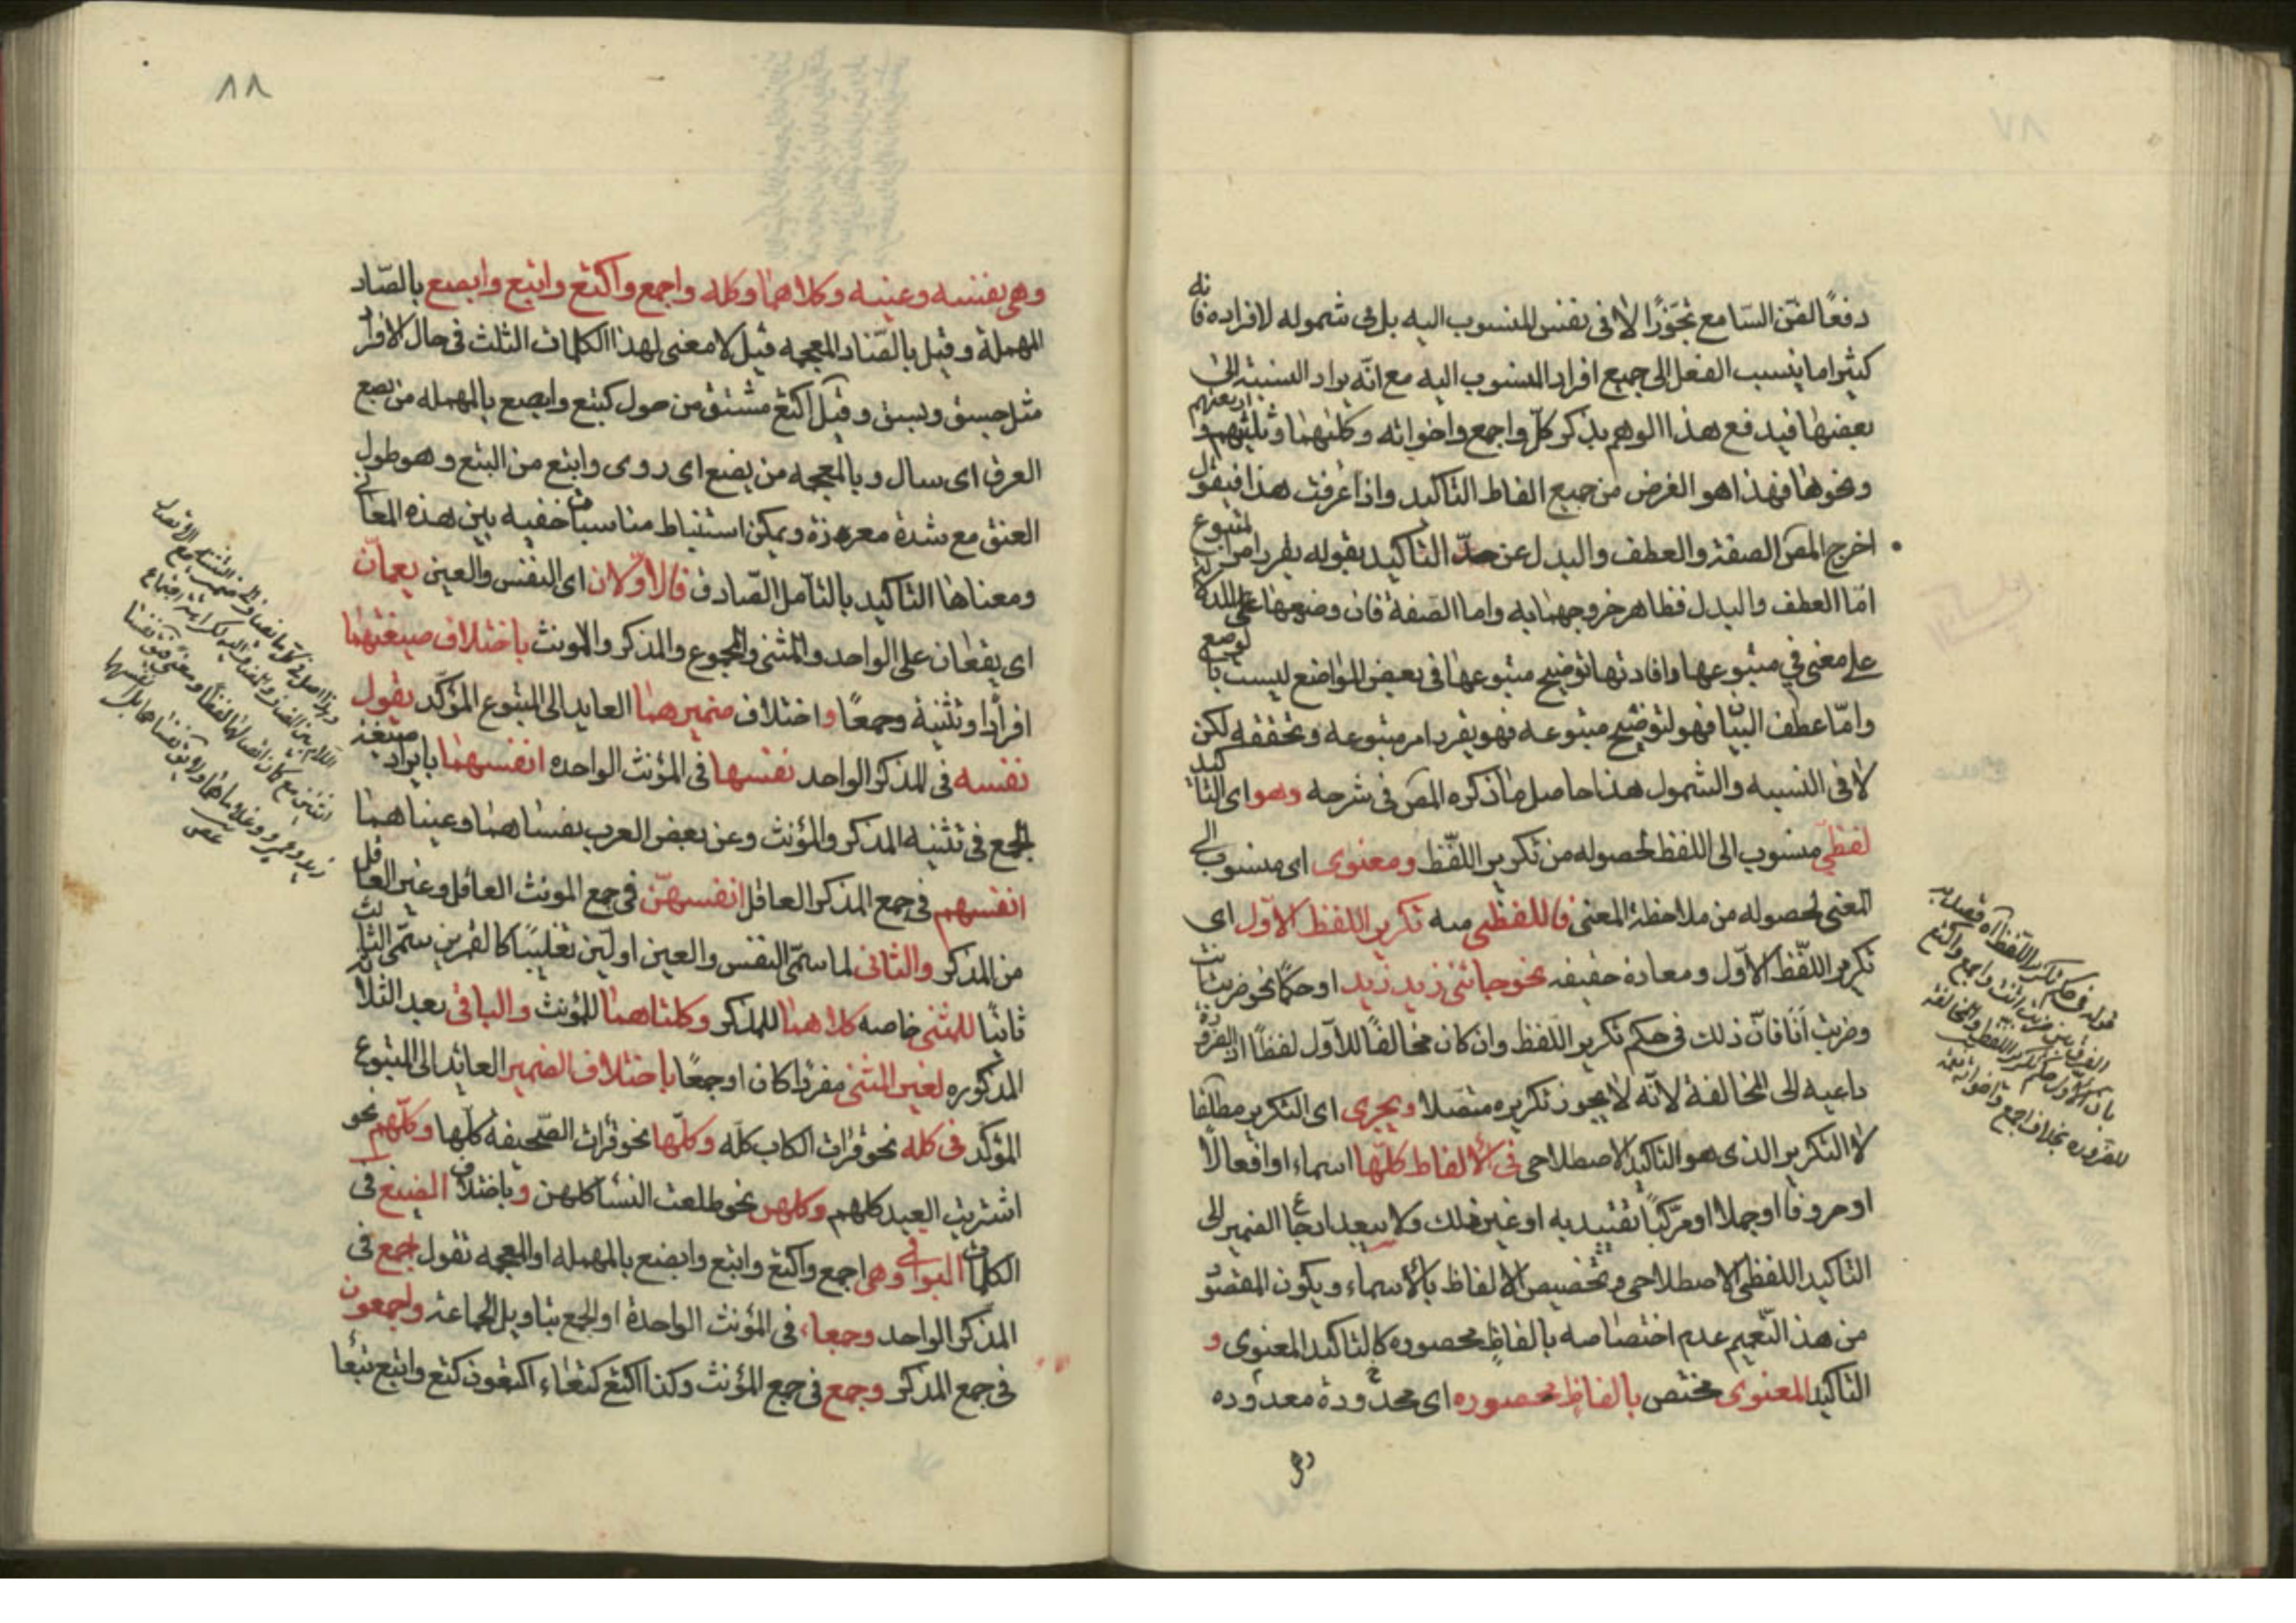 دفعًا لظن السامع تجوّزًا لا فى نفس المنسوب اليه بل فى شموله لافراده فانه
كثيرا ما ينسب الفعل الى جميع افراد المنسوب اليه مع انّه يراد النسبة الى
بعضها فيدفع هذا الوهم بذكر كلّ واجمع واخواته وكلاهما وثلثهم واربعتهم
ونحوها فهذا هو الغرض من جميع الفاظ التاكيد واذا عرفت هذا فيقول
اخرج المص الصفة والعطف والبدل عن حدّ التاكيد بقوله يقرر امر المتبوع
امّا العطف والبدل فظاهر خروجهما به واما الصفة فان وضعها للدلالة
على معنى فى متبوعها وافادتها توضيح متبوعها فى بعض المواضع ليست بالوضع
وامّا عطف البيان فهو لتوضيح متبوعه فهو يقرر امر متبوعه ويحققه لكن
لا فى النسبه والشمول هذا حاصل ما ذكره المص فى شرحه وهو اى التاكيد
لفظىّ منسوب الى اللفظ لحصوله من تكرير اللّفظ ومعنوى اى منسوب الى
المعنى لحصوله من ملاحظة المعنى فاللفظى منه تكرير اللفظ الاوّل اى
تكرير اللّفظ الاوّل ومعاده حقيقه نحو جائنى زيد زيد او حكمًا نحو ضربت انت
وضربت اَنَا فانّ ذلك فى حكم تكرير اللّفظ وان كان مخالفًا للاوّل لفظًا اذ الضرورة
داعيه الى المخالفة لانّه لا يجوز تكريره متصلا ويجرى اى التكرير مطلقا
لا التكرير الذى هو التاكيد الاصطلاحى فى الالفاظ كلّها اسماء او افعالًا
او حروفا او جملا او مركّبًا تقييديه او غير ذلك ولا يبعد ارجاع الضمير الى
التاكيد اللفظى الاصطلاحى وتخصيص الالفاظ بالاسماء ويكون المقصود
من هذا التعميم عدم اختصاصه بالفاظ محصوره كالتاكيد المعنوى و
التاكيد المعنوى مختص بالفاظ محصوره اى محدودة معدوده
وهى
قوله فى حكم تكرير اللّفظ
٨٨
وهى نفسه وعينه وكلاهما وكله واجمع واكتع وابتع وابصع بالصّاد
المهملة وقيل بالضّاد المعجمه قيل لا معنى لهذا الكلمات الثلث فى حال الافراد
مثل حسن وبسن وقيل اكتع مشتق من حول كتيع وابصع بالمهمله من بصع
العرق اى سال وبالمعجمه من بضع اى روى وابتع من البتع وهو طول
العنق مع شدة مغرزة ويمكن استنباط مناسبات خفيه بين هذه المعانى
ومعناها التاكيد بالتامل الصّادق فالاوّلان اى النفس والعين يعمّان
اى يقعان على الواحد والمثنى والمجموع والمذكر والمونث باختلاف صيغتهما
افرادا وتثنية وجمعًا واختلاف ضميرهما العايد الى المتبوع المؤكّد يقول
نفسه فى المذكر الواحد نفسها فى المؤنث الواحده انفسهما بايراد صيغة
الجمع فى تثنيه المذكر والمؤنث وعن بعض العرب نفساهما وعيناهما
انفسهم فى جمع المذكر العاقل انفسهنّ فى جمع المونث العاقل وغير العاقل
من المذكر والثانى لما سمّى النفس والعين اوليّن تغليبًا كالقمرين سمّى الثالث
ثانيًا للمثنى خاصه كلاهما للمذكر وكلتاهما للمؤنث والباقى بعد الثلاثة
المذكوره لغير المثنى مفردا كان او جمعًا باختلاف الضمير العائد الى المتبوع
المؤكّد فى كله نحو قرات الكتاب كلّه وكلّها نحو قرات الصّحيفه كلّها وكلّهم نحو
اشتريت العبيد كلهم وكلهن نحو طلعت النسا كلهن وباختلاف الصيغ فى
الكلمات البواقى وهى اجمع واكتع وابتع وابضع بالمهمله او المعجمه تقول اجمع فى
المذكر الواحد وجمعاء فى المؤنث الواحدة او الجمع بتاويل الجماعة واجمعون
فى جمع المذكر وجمع فى جمع المؤنث وكذا اكتع كتعاء اكتعون كتع وابتع بتعا